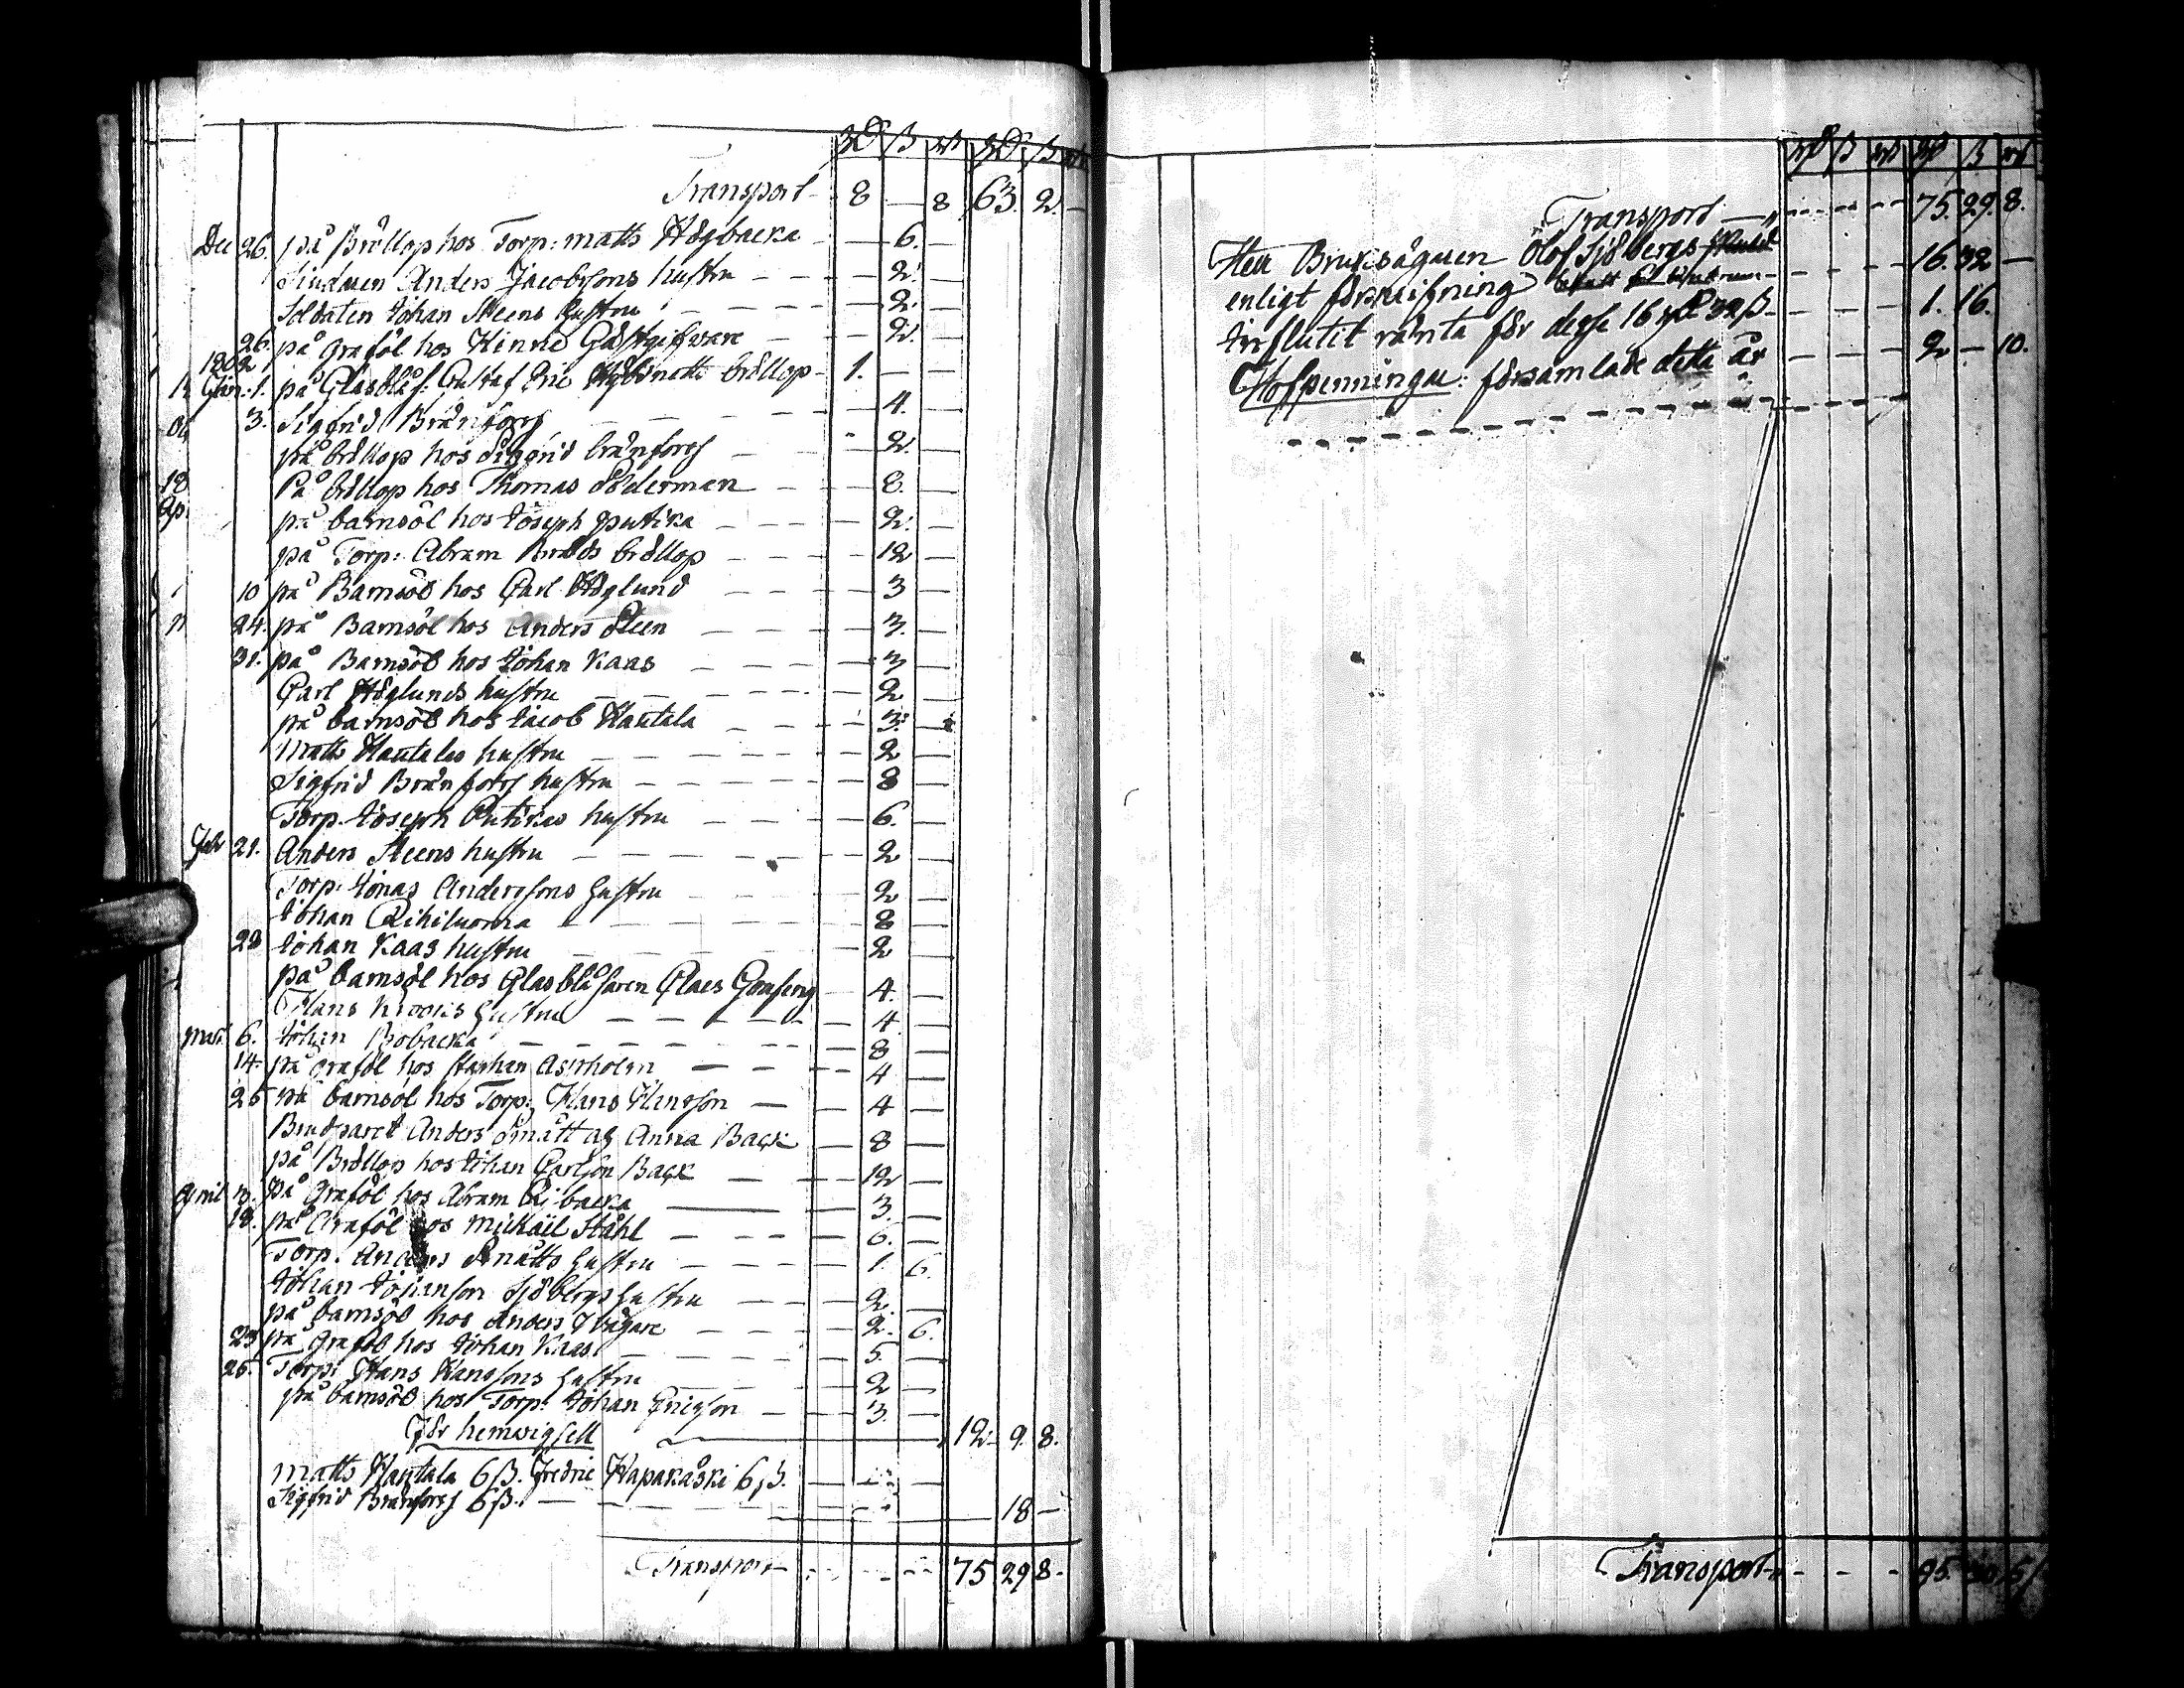 Rd ß rst Rd ß rst
Transport 8 — 8 63. 2. —
Dec 26. på Bröllop hos Torp: matts Högbacka — 6. —
Anders Jacobssons hustru — 2. —
Soldaten Johan Steens hustru — 2. —
26. på grafôl hos Hinnd Gästgifware — 2. —
1802
Jan. 1. på Glasblås: Gustaf bröllop 1. — —
3. Sigfrid Brånforss — 4. —
på bröllop hos Sigfrid brånforss — 2. —
På bröllop hos Thomas Söderman — 8. —
på barnsôl hos Joseph putika — 2. —
på Torp: Abram bröllop — 12 —
10 på Barnsôl hos Carl Höglund — 3 —
24. på Barnsôl hos Anders Steen — 3. —
31. på Barnsôl hos Johan Kaas — 3 —
Carl Höglunds hustru — 2 —
på barnsôl hos Jacob Hautala — 3. —
Matts Hautalas hustru — 2 —
Sigfrid Brånforss hustru — 8 —
Torp. Joseph Putikas hustru — 6. —
Feb 21. Anders Steens hustru — 2 —
Torp. Jonas Anderssons hustru — 2 —
Johan — 8 —
22 Johan Kaas hustru — 2 —
på barnsôl hos Glasblåsaren Claes — 4. —
Hans Krooks hustru — 4 —
mart. 6. Johan Brobacka — 8 —
14. på grafôl hos Staphan Asrholm — 4 —
25 på barnsôl hos Torp: Hans Hansson — 4 —
Brudparet Anders Smått og Anna Back — 8 —
på Bröllop hos Johan Carlson Back — 12 —
April 3. På Grafôl hos Abram — 3. —
18. på Grafôl hos Mickaël Ståhl — 6. —
Torp. Anders Småtts hustru — 1. 6.
Johan Johanson Sjöbergs hustru — 2. —
på barnsôl hos Anders — 2. 6.
23 på grafôl hos Johan Kaas — 5. —
26. Torp: Hans Hanssons hustru — 2 —
på barnsôl hos Torp: Johan Ericsson — 3. —
För hemwigsell 12. 9. 8.
matts Hautala 6 ß. Fredric Hapakåski 6 ß. — —
Sigfrid Brånforss 6 ß. 18 —
Transport 75 29 8.
Rd ß rst Rd ß rst
Transport 75. 29. 8.
Herr Bruksägaren Olof Sjöbergs skuld
enligt förskrifning 16. 32 —
Influtit ränta för desse 16 Rd 32 ß. 1. 16.
Hofpenningar: församlade detta år 2 — 10.
Transport 95. 30 5